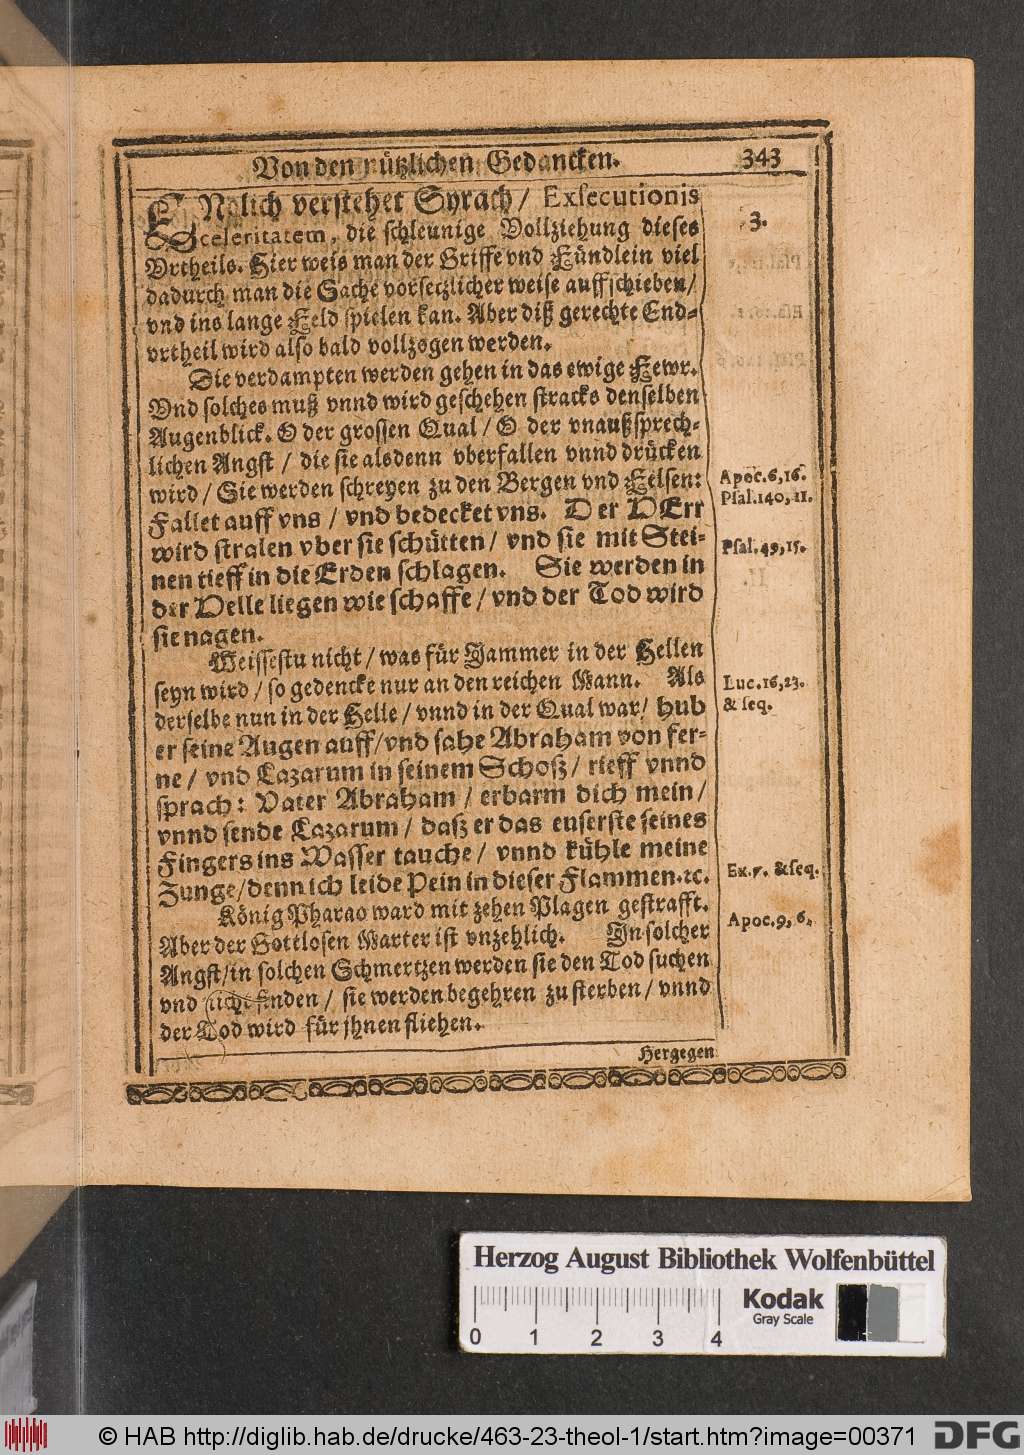 Von den nützlichen Gedancken. 343
ENdlich verstehet Syrach / Exsecutionis
celeritatem, die schleunige Vollziehung dieses
Vrtheils. Hier weis man der Griffe vnd Fündlein viel
dadurch man die Sache vorsetzlicher weise auffschieben/
vnd ins lange Feld spielen kan. Aber diß gerechte End-
vrtheil wird also bald vollzogen werden.
Die verdampten werden gehen in das ewige Fewr.
Vnd solches muß vnnd wird geschehen stracks denselben
Augenblick. O der grossen Qual / O der vnaußsprech-
lichen Angst / die sie alsdenn vberfallen vnnd drücken
wird / Sie werden schreyen zu den Bergen vnd Felsen:
Fallet auff vns / vnd bedecket vns. Der HErr
wird stralen vber sie schütten / vnd sie mit Stei-
nen tieff in die Erden schlagen. Sie werden in
der Helle liegen wie schaffe / vnd der Tod wird
sie nagen.
Weissestu nicht / was für Jammer in der Hellen
seyn wird / so gedencke nur an den reichen Mann. Als
derselbe nun in der Helle / vnnd in der Qual war / hub
er seine Augen auff/vnd sahe Abraham von fer-
ne / vnd Lazarum in seinem Schoß / rieff vnnd
sprach: Vater Abraham / erbarm dich mein /
vnnd sende Lazarum / daß er das euserste seines
Fingers ins Wasser tauche / vnnd kühle meine
Zunge/denn ich leide Pein in dieser Flammen.ꝛc.
König Pharao ward mit zehen Plagen gestrafft.
Aber der Gottlosen Marter ist vnzehlich. In solcher
Angst/in solchen Schmertzen werden sie den Tod suchen
vnd nicht finden / sie werden begehren zu sterben / vnnd
der Tod wird für jhnen fliehen.
Hergegen
3.
Apoc.6,16.
Psal.140,11.
Psal.49,15.
Luc.16,23.
& seq.
Ex.7. & seq.
Apoc.9,6.
Herzog August Bibliothek Wolfenbüttel
0 1 2 3 4
Kodak
Gray Scale
© HAB http://diglib.hab.de/drucke/463-23-theol-1/start.htm?image=00371
DFG